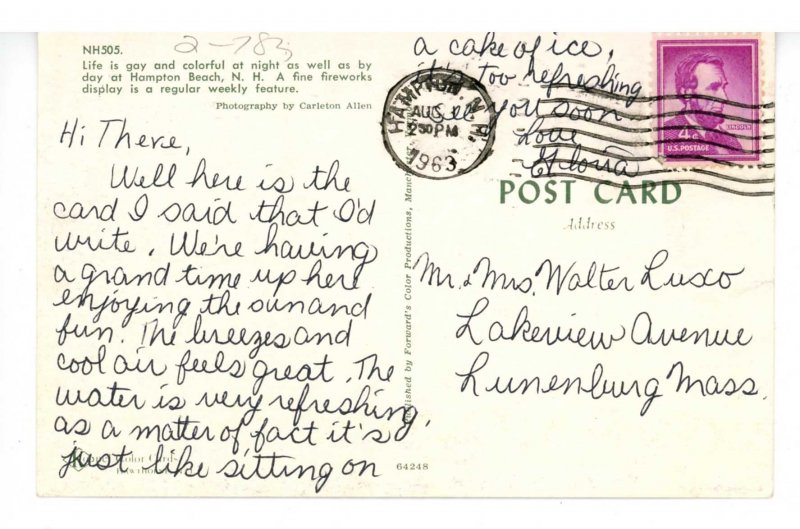 NH505.
2-78
Life is gay and colorful at night as well as by
day at Hampton Beach, N. H. A fine fireworks
display is a regular weekly feature.
Photography by Carleton Allen
Hi There,
Well here is the
card I said that I'd
write. We're having
a grand time up here
enjoying the sun and
fun. The breezes and
cool air feels great. The
water is very refreshing,
as a matter of fact it's
just like sitting on
a cake of ice,
it's too refreshing
See you soon
Love
Gloria
HAMPTON N.H.
AUG
2 30 PM
1963
4¢
U.S. POSTAGE
LINCOLN
POST CARD
Address
Mr. & Mrs. Walter Luxo
Lakeview Avenue
Lunenburg Mass.
Published by Forward's Color Productions, Manc
Color Cards
64248